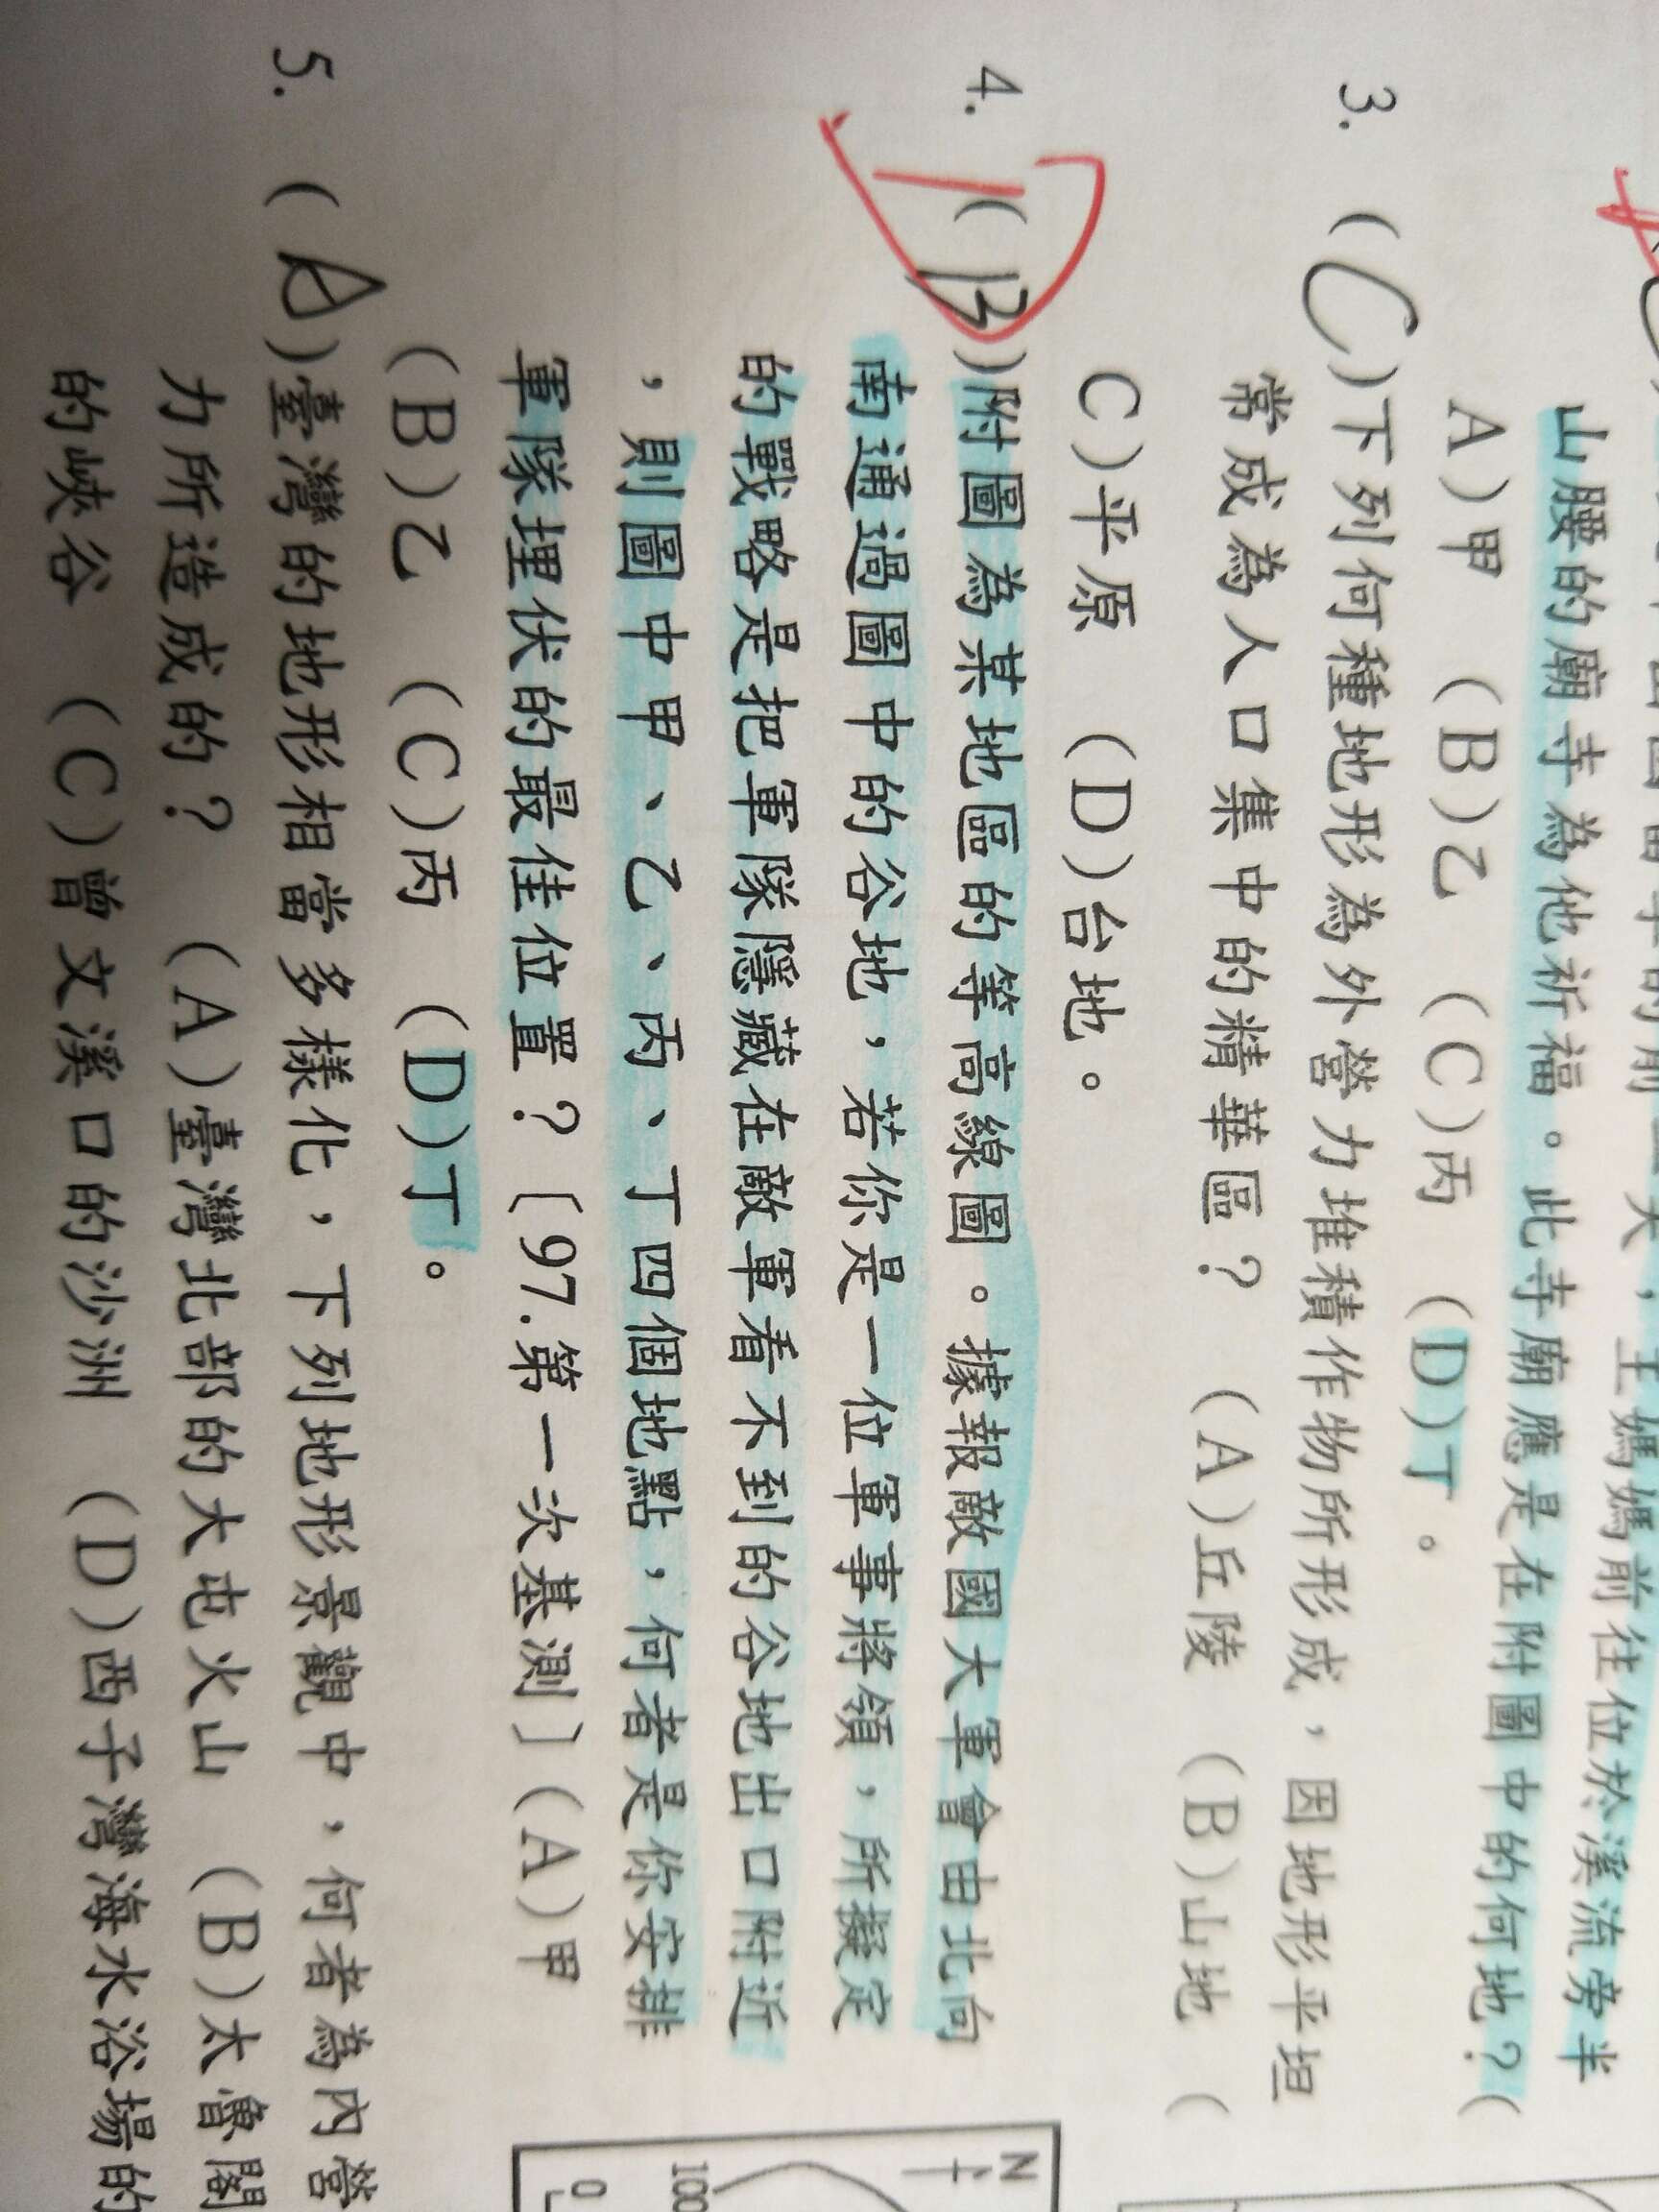 山腰的廟寺為他祈福。此寺廟應是在附圖中的何地？(
A)甲 (B)乙 (C)丙 (D)丁。
3. (C)下列何種地形為外營力堆積作物所形成，因地形平坦
常成為人口集中的精華區？ (A)丘陵 (B)山地 (
C)平原 (D)台地。
4. (B)附圖為某地區的等高線圖。據報敵國大軍會由北向
南通過圖中的谷地，若你是一位軍事將領，所擬定
的戰略是把軍隊隱藏在敵軍看不到的谷地出口附近
，則圖中甲、乙、丙、丁四個地點，何者是你安排
軍隊埋伏的最佳位置？〔97.第一次基測〕(A)甲
(B)乙 (C)丙 (D)丁。
5. (A)臺灣的地形相當多樣化，下列地形景觀中，何者為內營
力所造成的？ (A)臺灣北部的大屯火山 (B)太魯閣
的峽谷 (C)曾文溪口的沙洲 (D)西子灣海水浴場的
N
100
0